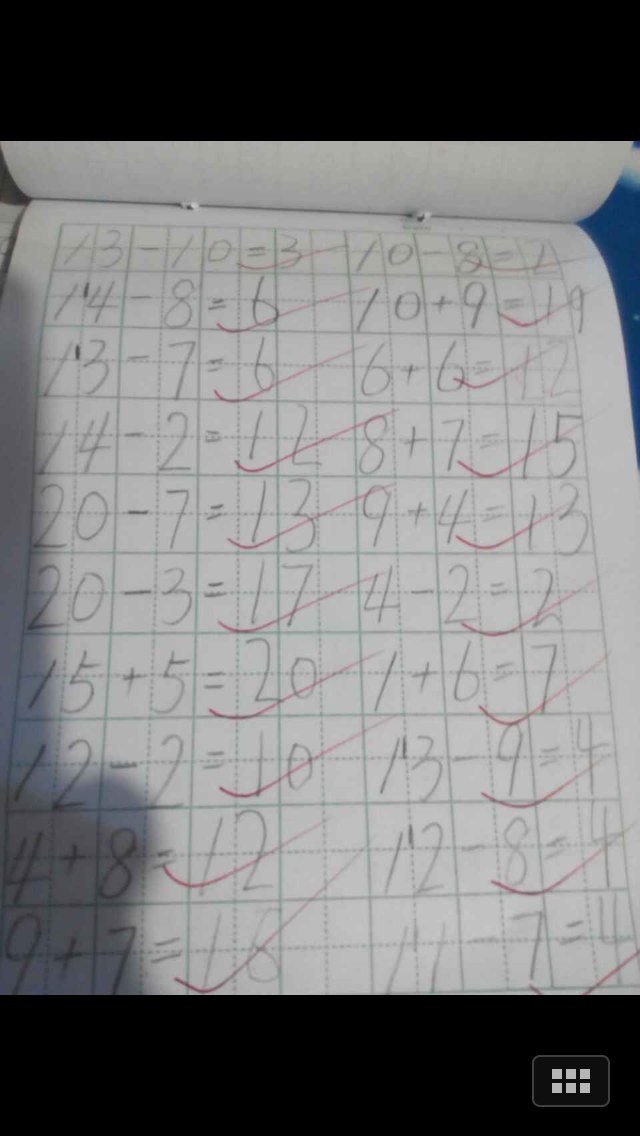 13-10=3 10-8=2
14-8=6 10+9=19
13-7=6 6+6=12
14-2=12 8+7=15
20-7=13 9+4=13
20-3=17 4-2=2
15+5=20 1+6=7
12-2=10 13-9=4
4+8=12 12-8=4
9+7=16 11-7=4